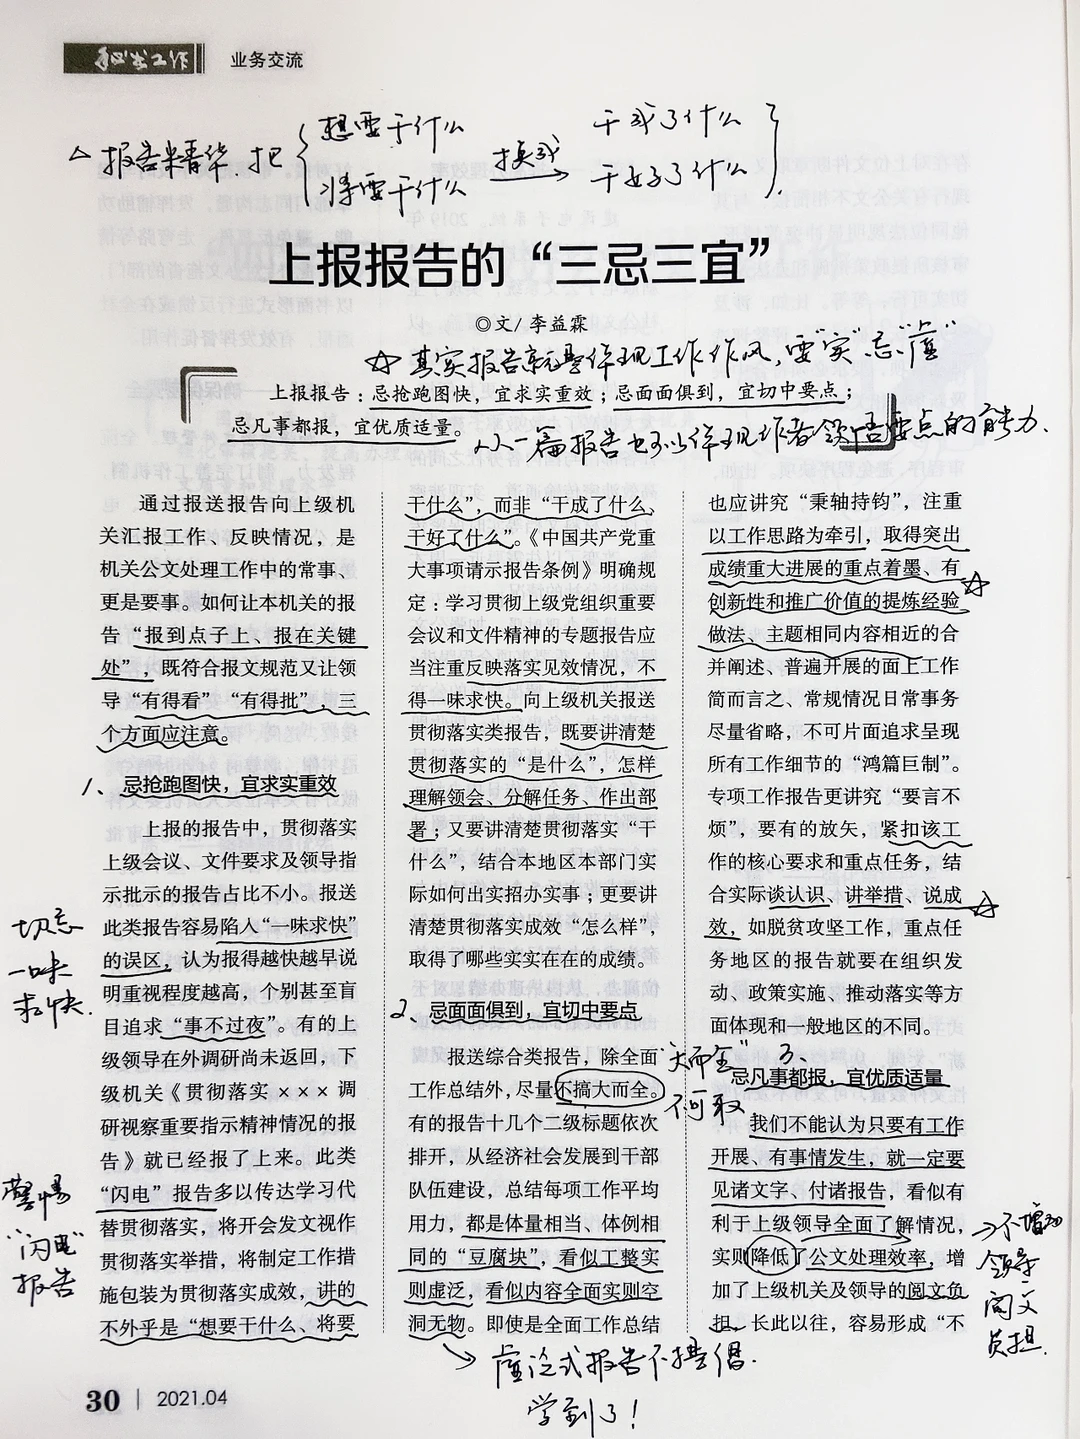 秘书工作 业务交流
△报告精华.把{想要干什么 将要干什么 换成→ 干成了什么 干好了什么}.
上报报告的“三忌三宜”
◎文/李益霖
☆其实报告就是体现工作作风,要“实”忌“虚”
上报报告：忌抢跑图快，宜求实重效；忌面面俱到，宜切中要点；
忌凡事都报，宜优质适量。
从一篇报告也可以体现作者领悟要点的能力.
通过报送报告向上级机
关汇报工作、反映情况，是
机关公文处理工作中的常事、
更是要事。如何让本机关的报
告“报到点子上、报在关键
处”，既符合报文规范又让领
导“有得看”“有得批”，三
个方面应注意。
1、忌抢跑图快，宜求实重效
上报的报告中，贯彻落实
上级会议、文件要求及领导指
示批示的报告占比不小。报送
此类报告容易陷入“一味求快”
的误区，认为报得越快越早说
明重视程度越高，个别甚至盲
目追求“事不过夜”。有的上
级领导在外调研尚未返回，下
级机关《贯彻落实×××调
研视察重要指示精神情况的报
告》就已经报了上来。此类
“闪电”报告多以传达学习代
替贯彻落实，将开会发文视作
贯彻落实举措，将制定工作措
施包装为贯彻落实成效，讲的
不外乎是“想要干什么、将要
切忌
一味
求快.
警惕
“闪电”
报告
干什么”，而非“干成了什么、
干好了什么”。《中国共产党重
大事项请示报告条例》明确规
定：学习贯彻上级党组织重要
会议和文件精神的专题报告应
当注重反映落实见效情况，不
得一味求快。向上级机关报送
贯彻落实类报告，既要讲清楚
贯彻落实的“是什么”，怎样
理解领会、分解任务、作出部
署；又要讲清楚贯彻落实“干
什么”，结合本地区本部门实
际如何出实招办实事；更要讲
清楚贯彻落实成效“怎么样”，
取得了哪些实实在在的成绩。
2、忌面面俱到，宜切中要点
报送综合类报告，除全面
工作总结外，尽量不搞大而全。
有的报告十几个二级标题依次
排开，从经济社会发展到干部
队伍建设，总结每项工作平均
用力，都是体量相当、体例相
同的“豆腐块”，看似工整实
则虚泛，看似内容全面实则空
洞无物。即使是全面工作总结
“大而全”
不可取
虚泛式报告不提倡.
学到了!
也应讲究“秉轴持钧”，注重
以工作思路为牵引，取得突出
成绩重大进展的重点着墨、有
创新性和推广价值的提炼经验
做法、主题相同内容相近的合
并阐述、普遍开展的面上工作
简而言之、常规情况日常事务
尽量省略，不可片面追求呈现
所有工作细节的“鸿篇巨制”。
专项工作报告更讲究“要言不
烦”，要有的放矢，紧扣该工
作的核心要求和重点任务，结
合实际谈认识、讲举措、说成
效，如脱贫攻坚工作，重点任
务地区的报告就要在组织发
动、政策实施、推动落实等方
面体现和一般地区的不同。
3、
忌凡事都报，宜优质适量
我们不能认为只要有工作
开展、有事情发生，就一定要
见诸文字、付诸报告，看似有
利于上级领导全面了解情况，
实则降低了公文处理效率，增
加了上级机关及领导的阅文负
担。长此以往，容易形成“不
→不增加
领导
阅文
负担.
30 | 2021.04